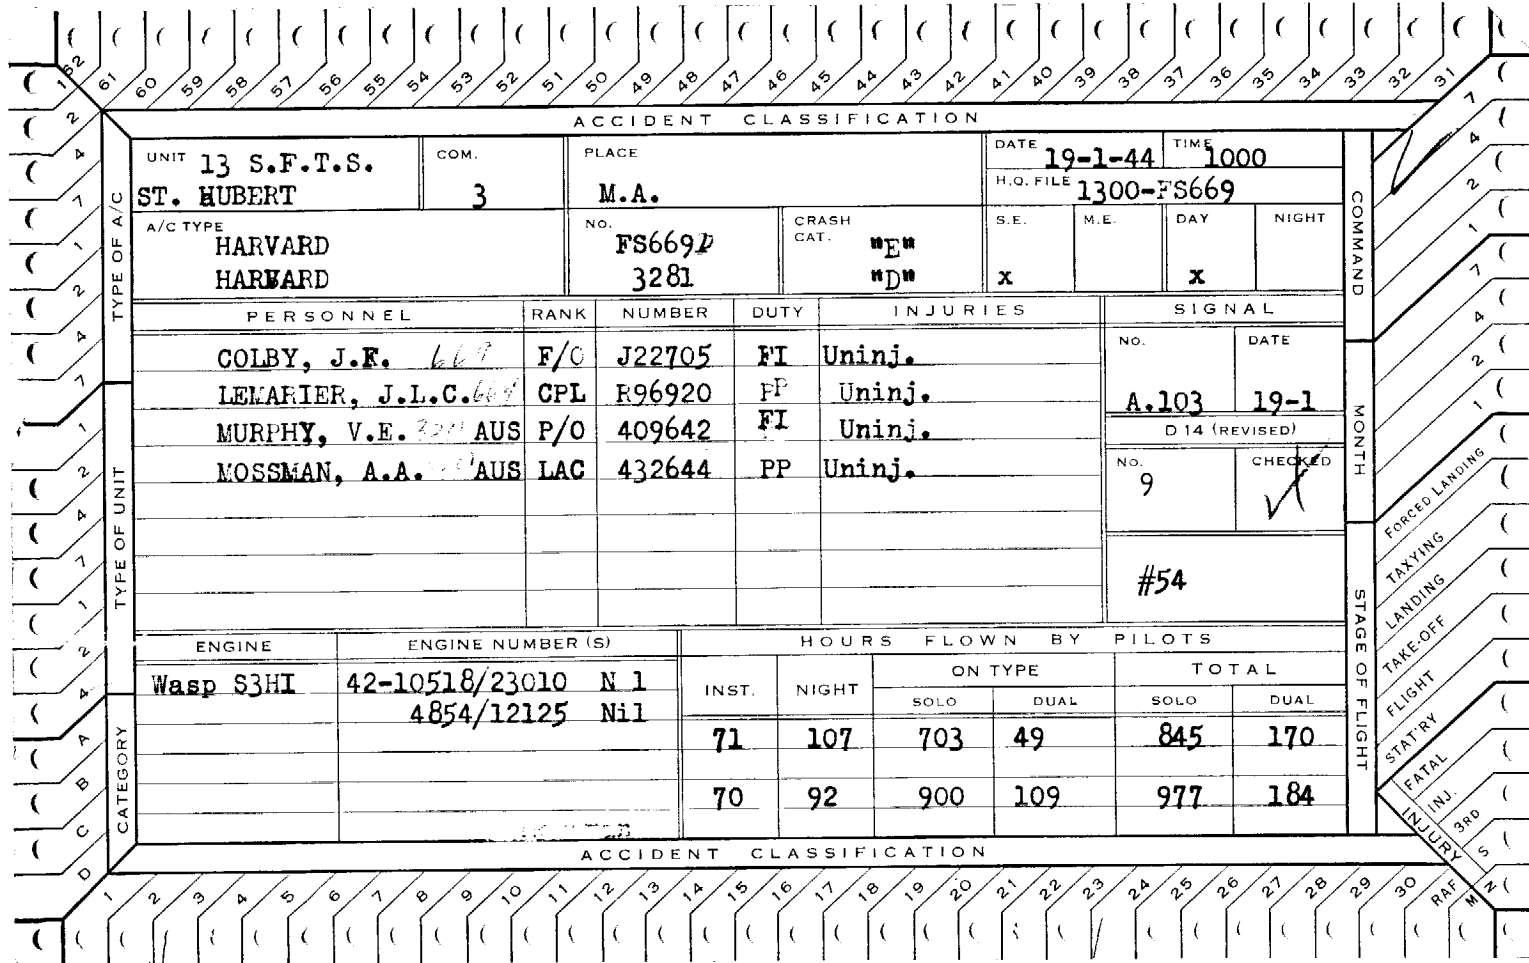 62 61 60 59 58 57 56 55 54 53 52 51 50 49 48 47 46 45 44 43 42 41 40 39 38 37 36 35 34 33 32 31
ACCIDENT CLASSIFICATION
UNIT 13 S.F.T.S.
ST. HUBERT
COM.
3
PLACE
M.A.
DATE 19-1-44
TIME 1000
H.Q. FILE 1300-FS669
A/C TYPE
HARVARD
HARVARD
NO.
FS669D
3281
CRASH CAT.
"E"
"D"
S.E.
x
M.E.
DAY
x
NIGHT
PERSONNEL RANK NUMBER DUTY INJURIES
COLBY, J.F. 669 F/O J22705 FI Uninj.
LEMARIER, J.L.C. 669 CPL R96920 PP Uninj.
MURPHY, V.E. AUS P/O 409642 FI Uninj.
MOSSMAN, A.A. AUS LAC 432644 PP Uninj.
SIGNAL
NO. DATE
A.103 19-1
D 14 (REVISED)
NO. CHECKED
9
#54
ENGINE ENGINE NUMBER (S)
Wasp S3HI 42-10518/23010 N 1
4854/12125 Nil
HOURS FLOWN BY PILOTS
INST. NIGHT ON TYPE TOTAL
SOLO DUAL SOLO DUAL
71 107 703 49 845 170
70 92 900 109 977 184
ACCIDENT CLASSIFICATION
1 2 3 4 5 6 7 8 9 10 11 12 13 14 15 16 17 18 19 20 21 22 23 24 25 26 27 28 29 30 RAF M N
TYPE OF A/C
TYPE OF UNIT
CATEGORY
1 2 4 7 1 2 4 7 1 2 4 7 1 2 4 A B C D
COMMAND
MONTH
STAGE OF FLIGHT
7 4 2 1 7 4 2 1
FORCED LANDING
TAXYING
LANDING
TAKE-OFF
FLIGHT
STAT'RY
FATAL
INJ.
3RD
S
INJURY